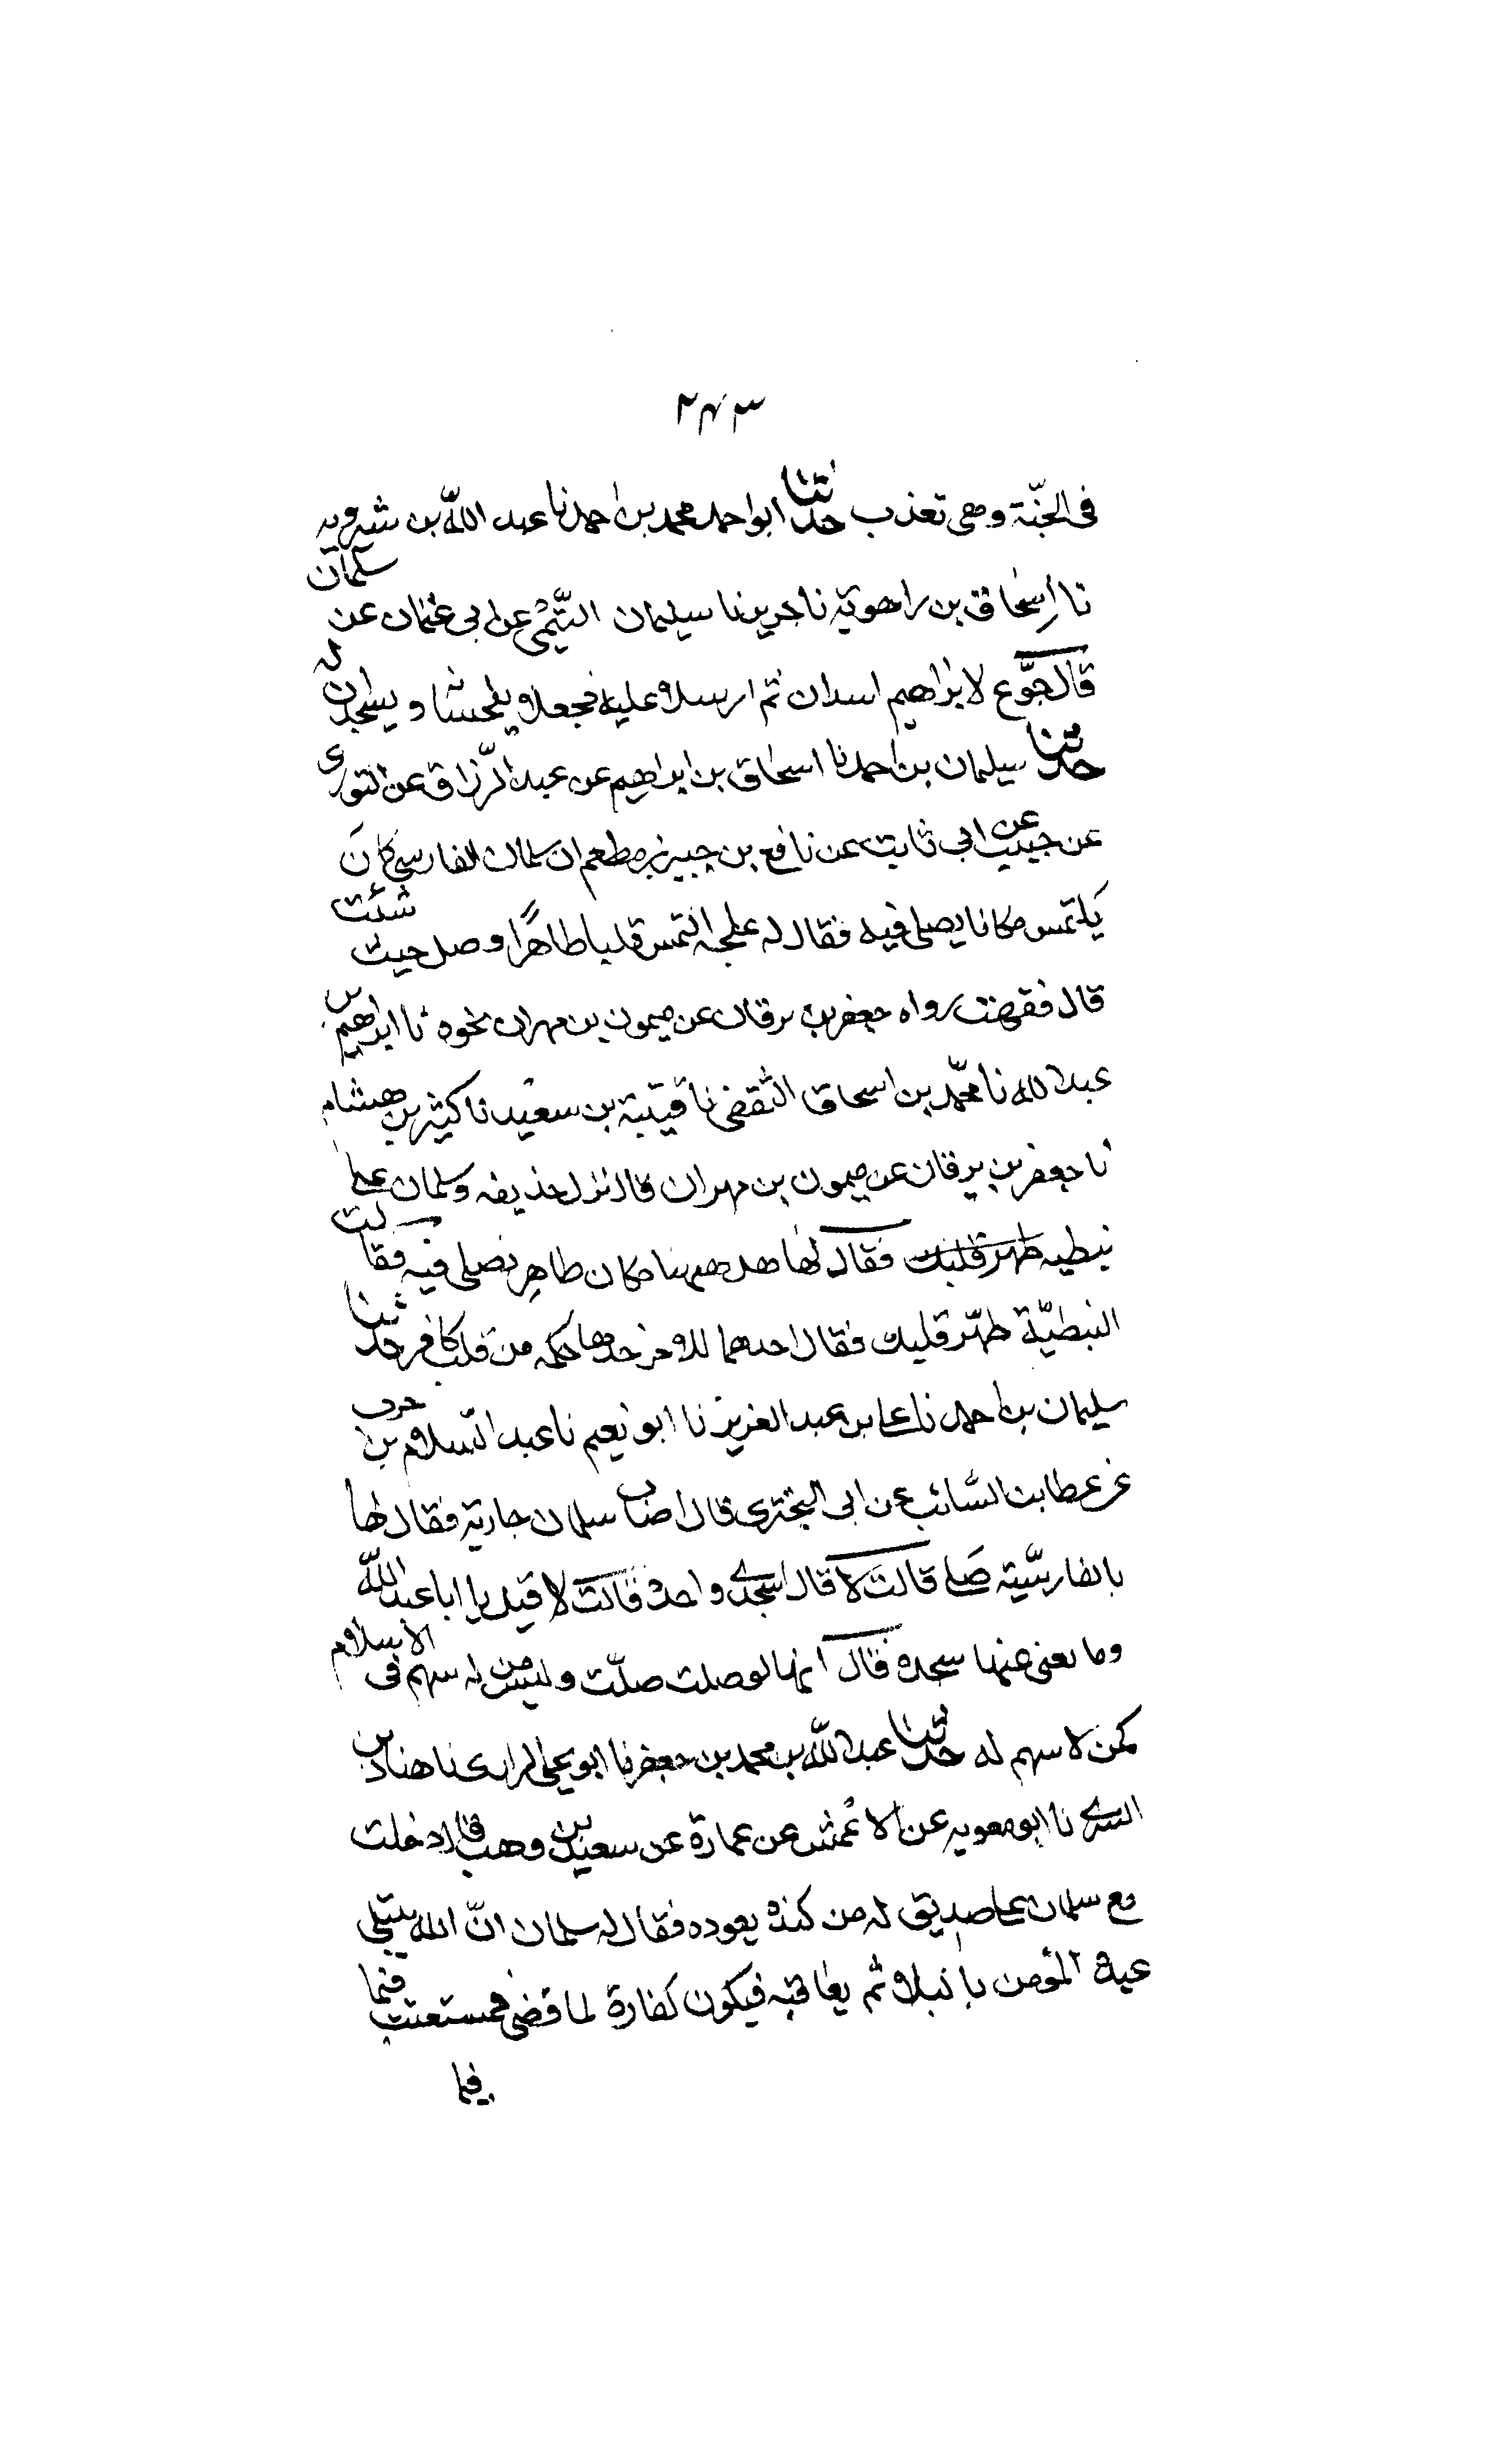 ٢٤٣
فى الجنّة وهى تعذب حدثنا ابو احمد محمد بن احمد نا عبد الله بن شيرويه
نا إسحاق بن راهويه نا جرير نا سليمان التّيمى عن ابى عثمان عن سلمان
قال جوّع لابراهيم اسدان ثم ارسلا عليه فجعلا يلحسانه ويسجدان له
حدثنا سليمان بن احمد نا اسحاق بن ابراهيم عن عبد الرّزاق عن الثورى
عن حبيب عن ابى ثابت عن نافع بن جبير بن مطعم ان سلمان الفارسى كان
يلتمس مكانا يصلى فيه فقال له علجة التمس قلبا طاهرًا وصل حيث شئت
قال فقهت رواه جعفر بن برقان عن ميمون بن مهران نحوه نا ابراهيم بن
عبد الله نا محمّد بن اسحاق الثقفى نا قتيبة بن سعيد نا كثير بن هشام
نا جعفر بن برقان عن ميمون بن مهران قال نزل حذيفه وسلمان على
نبطيه طهر قلبك فقال لها هل ههنا مكان طاهر نصلى فيه فقالت
النبطيّة طهّر قلبك فقال احدهما للاخر خذها حكمه من قلب كافر حدثنا
سليمان بن احمد نا على بن عبد العزيز نا ابو نعيم نا عبد السّلام بن حرب
عن عطا بن السّائب عن ابى البخترى قال اصاب سلمان جارية فقال لها
بالفارسّية صَلى قالت لا قال اسجدى واحدة قالت لا قيل يا ابا عبد الله
وما تغنى عنها سجده قال انها لو صلت صلّت وليس من له سهم فى الاسلام
كمن لا سهم له حدثنا عبد الله بن محمد بن جعفر نا ابو يحيى الرازى نا هناد بن
السرى نا ابو معويه عن الاعمش عن عمارة عن سعيد بن وهب قال دخلت
مع سلمان على صديق له من كنده يعوده فقال له سلمان انّ الله يبتلى
عبده المؤمن بالبلا ثم يعافيه فيكون كفارة لما قضى فيستعتب فيما
فيما